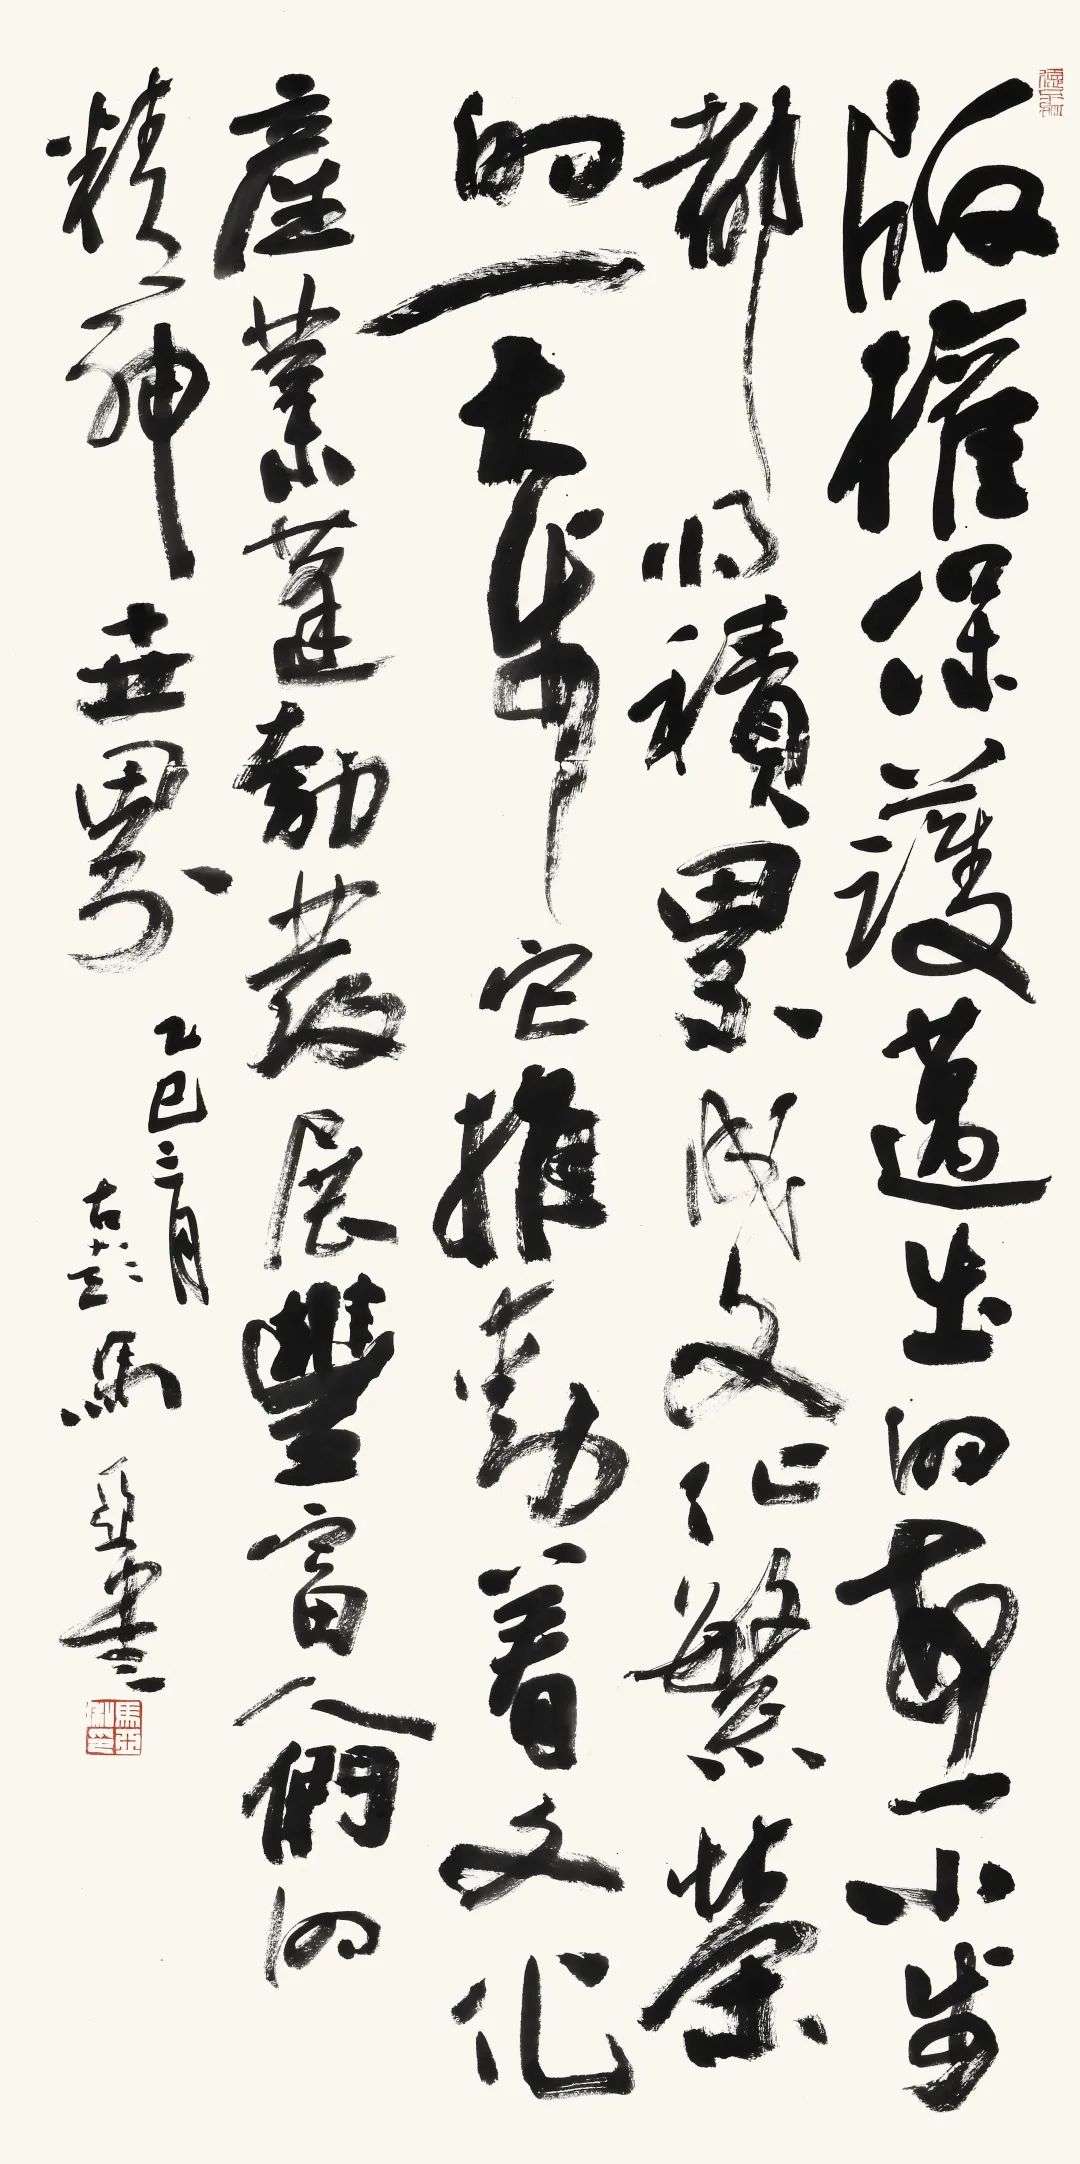 版權保護邁出的每一小步
都將積累成文化繁榮
的一大步它推動着文化
產業蓬勃發展豐富人們的
精神世界
乙巳三月
古彭馬亞書
馬亞印